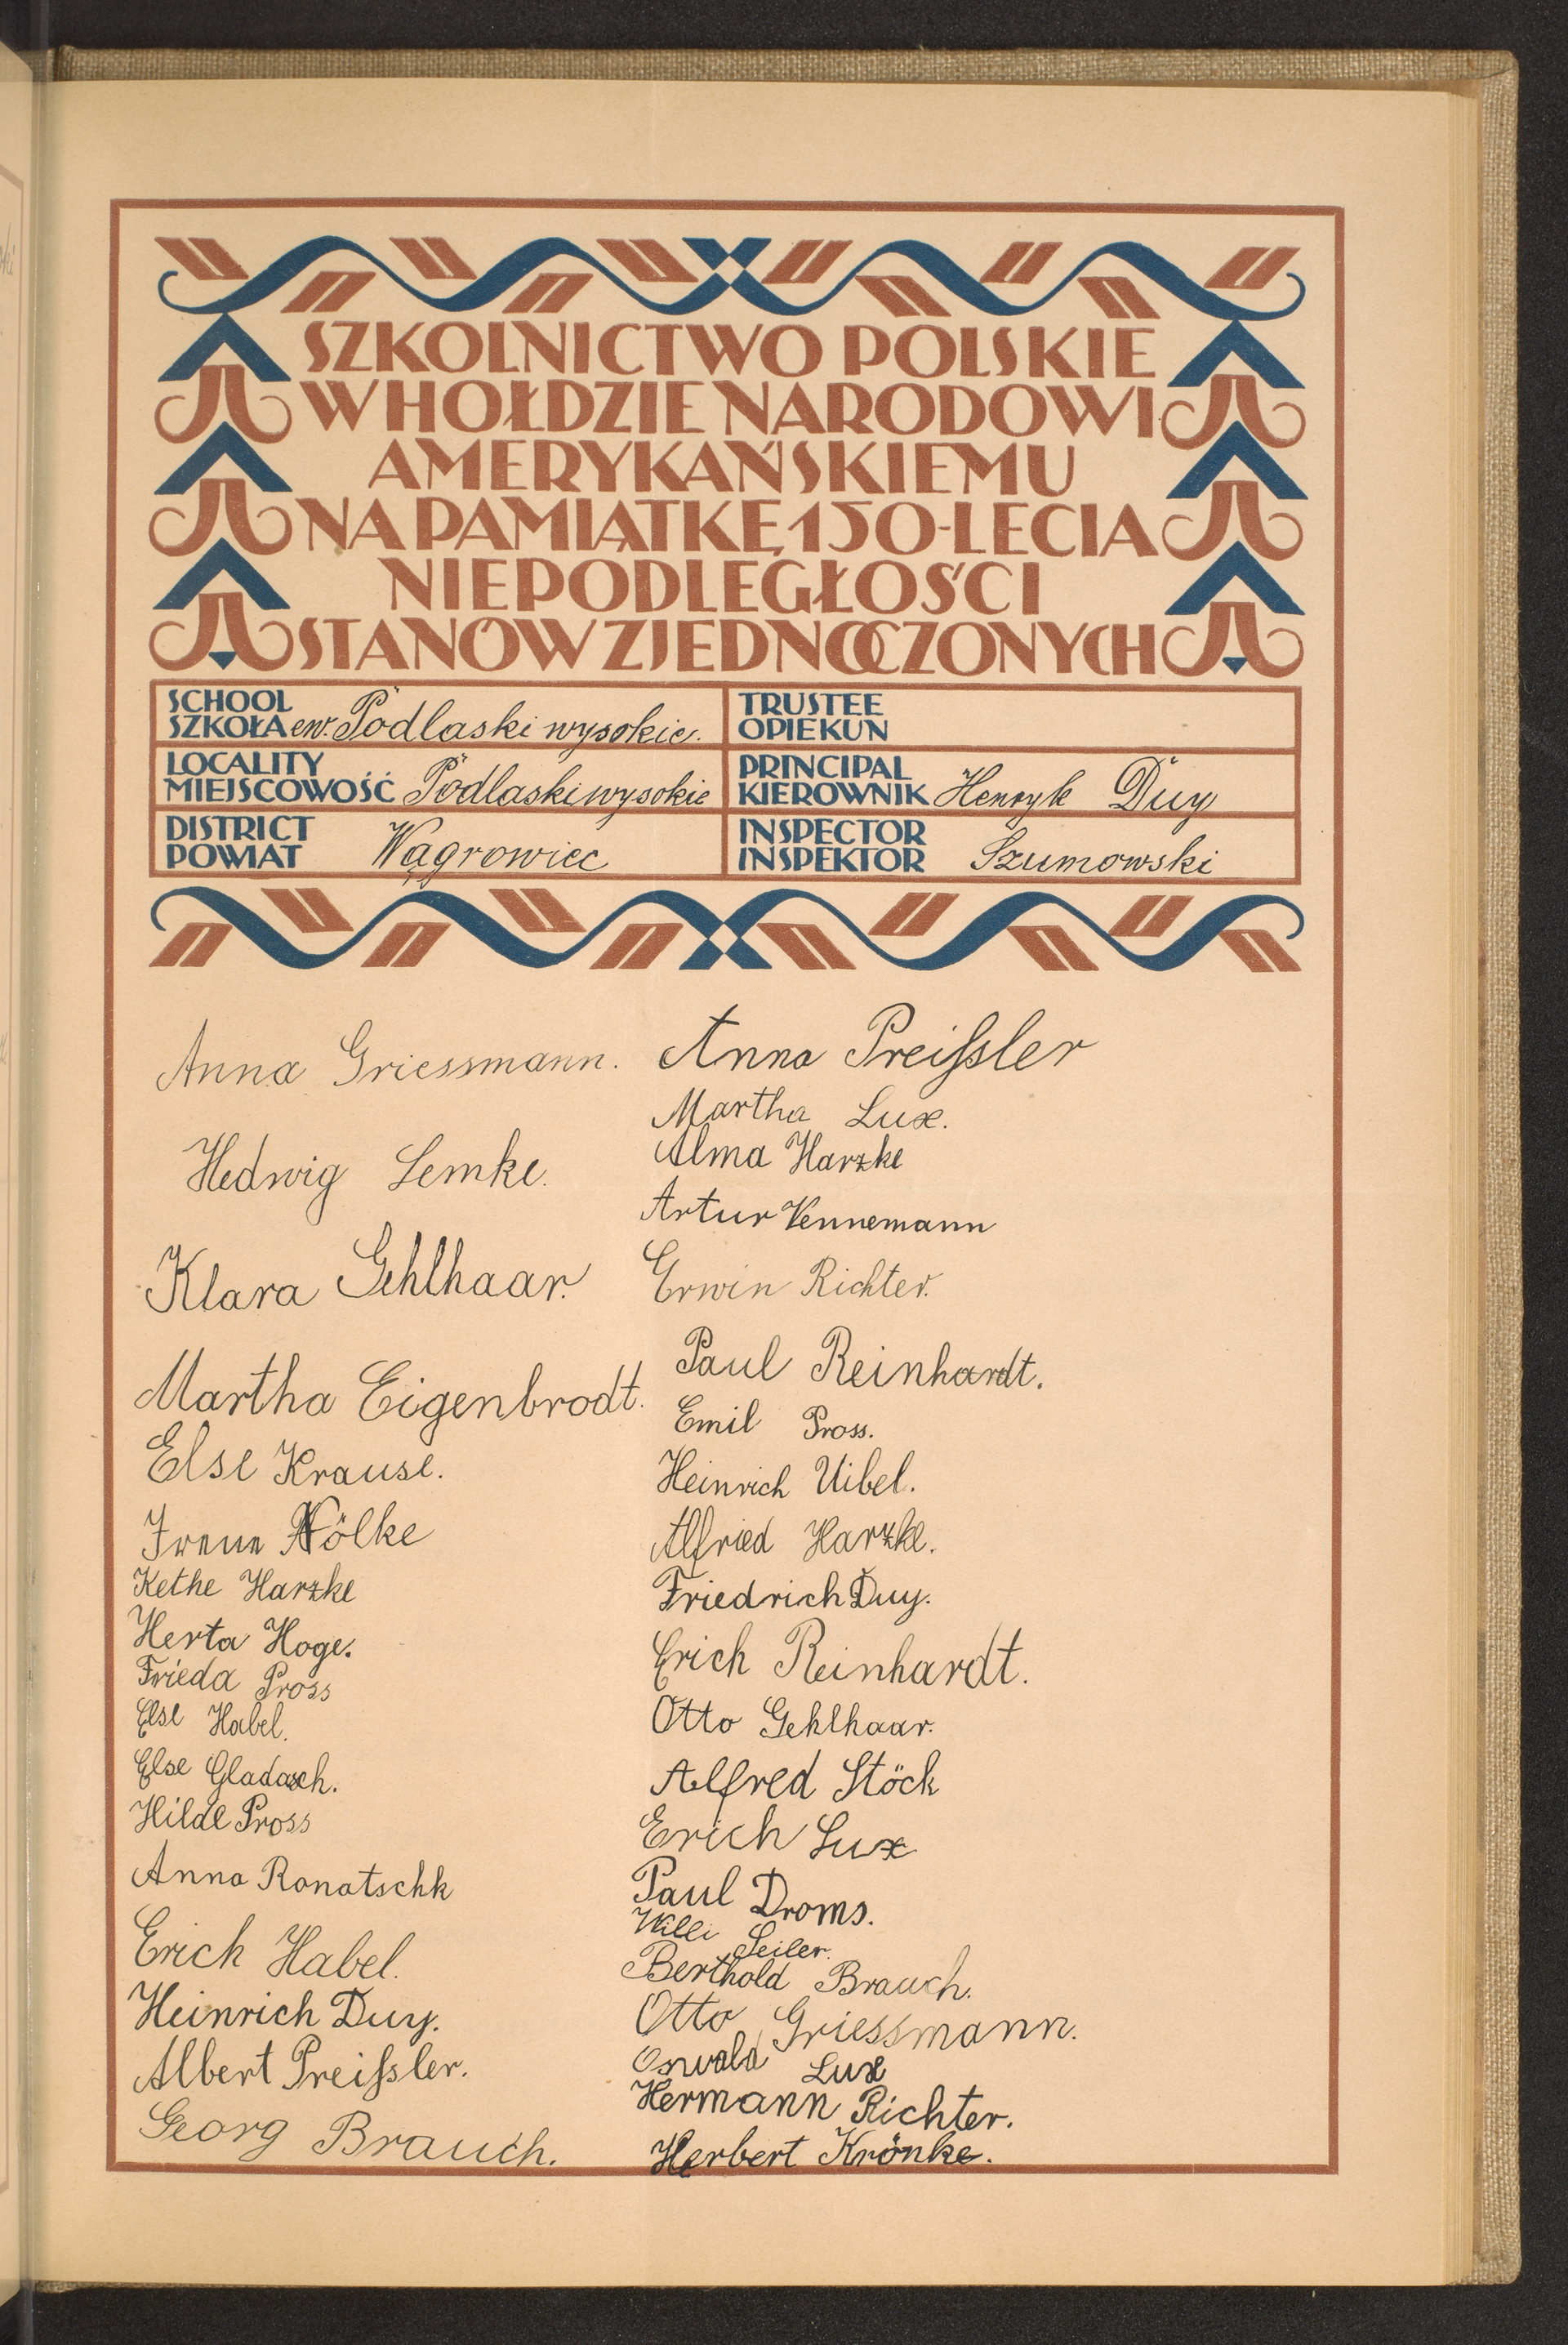 SZKOLNICTWO POLSKIE
W HOŁDZIE NARODOWI
AMERYKAŃSKIEMU
NA PAMIĄTKĘ 150-LECIA
NIEPODLEGŁOŚCI
STANÓW ZJEDNOCZONYCH
SCHOOL
SZKOŁA ew. Podlaski wysokie.
LOCALITY
MIEJSCOWOŚĆ Podlaski wysokie
DISTRICT
POWIAT Wągrowiec
TRUSTEE
OPIEKUN
PRINCIPAL
KIEROWNIK Henryk Duy
INSPECTOR
INSPEKTOR Szumowski
Anna Griessmann.
Hedwig Lemke.
Klara Gehlhaar.
Martha Eigenbrodt.
Else Krause.
Irene Nölke
Kethe Harzke
Herta Hoge.
Frieda Pross
Else Habel.
Else Gladasch.
Hilde Pross
Anna Ronatschk
Erich Habel.
Heinrich Duy.
Albert Preiſsler.
Georg Brauch.
Anna Preiſsler
Martha Lux.
Alma Harzke
Artur Vennemann
Erwin Richter.
Paul Reinhardt.
Emil Pross.
Heinrich Uibel.
Alfried Harzke.
Friedrich Duy.
Erich Reinhardt.
Otto Gehlhaar.
Alfred Stöck
Erich Lux
Paul Droms.
Willi Seiler.
Berthold Brauch.
Otto Griessmann.
Oswald Lux
Hermann Richter.
Herbert Krönke.